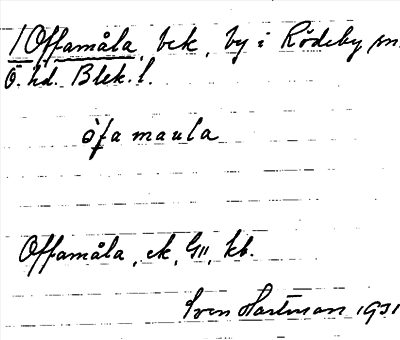 1 Offamåla, bek, by i Rödeby sn.
Ö. hd. Blek. l.
òfa maula
Offamåla, ek, GII, kb.
Sven Hartman 1931